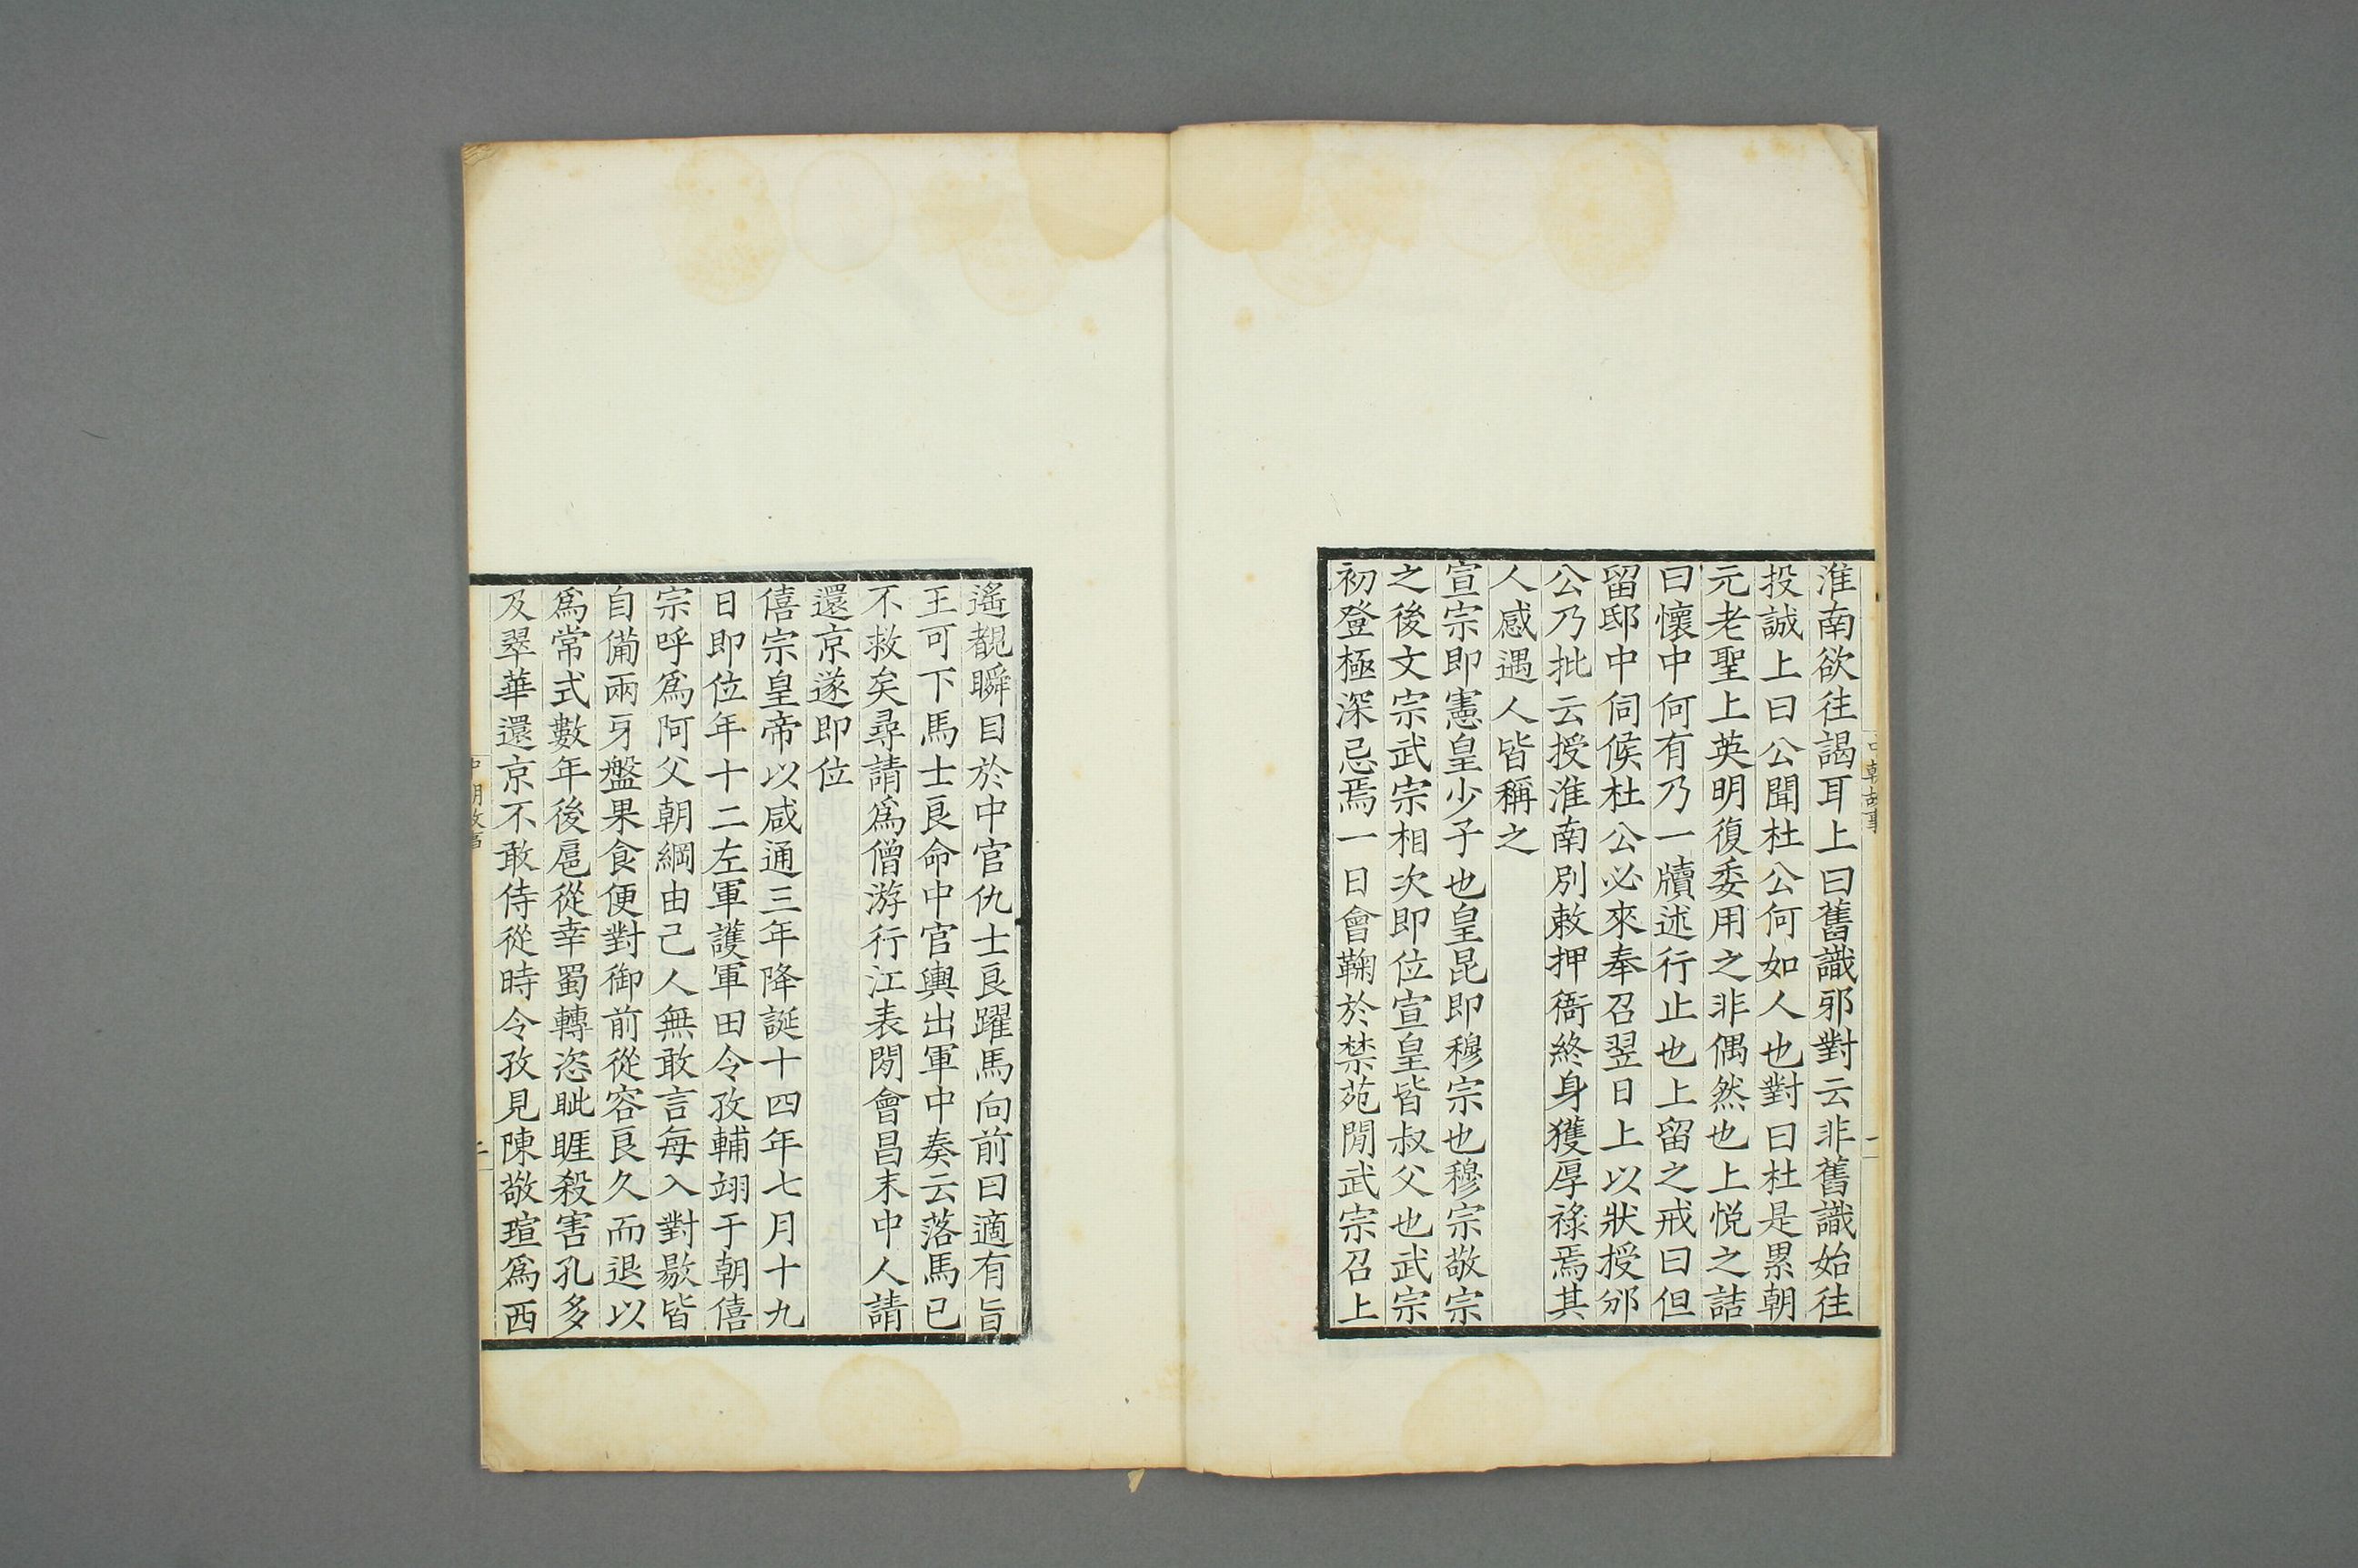 淮南欲往謁耳上曰舊識邪對云非舊識始往
投誠上曰公聞杜公何如人也對曰杜是累朝
元老聖上英明復委用之非偶然也上悅之詰
曰懷中何有乃一牘述行止也上留之戒曰但
留邸中伺候杜公必來奉召翌日上以狀授邠
公乃批云授淮南別敕押衙終身獲厚祿焉其
人感遇人皆稱之
宣宗即憲皇少子也皇昆即穆宗也穆宗敬宗
之後文宗武宗相次即位宣皇皆叔父也武宗
初登極深忌焉一日會鞠於禁苑閒武宗召上
遙覩瞬目於中官仇士良躍馬向前曰適有旨
王可下馬士良命中官輿出軍中奏云落馬已
不救矣尋請爲僧游行江表閒會昌末中人請
還京遂即位
僖宗皇帝以咸通三年降誕十四年七月十九
日即位年十二左軍護軍田令孜輔翊于朝僖
宗呼爲阿父朝綱由己人無敢言每入對敭皆
自備兩牙盤果食便對御前從容良久而退以
爲常式數年後扈從幸蜀轉恣眦睚殺害孔多
及翠華還京不敢侍從時令孜見陳敬瑄爲西
中朝故事
二